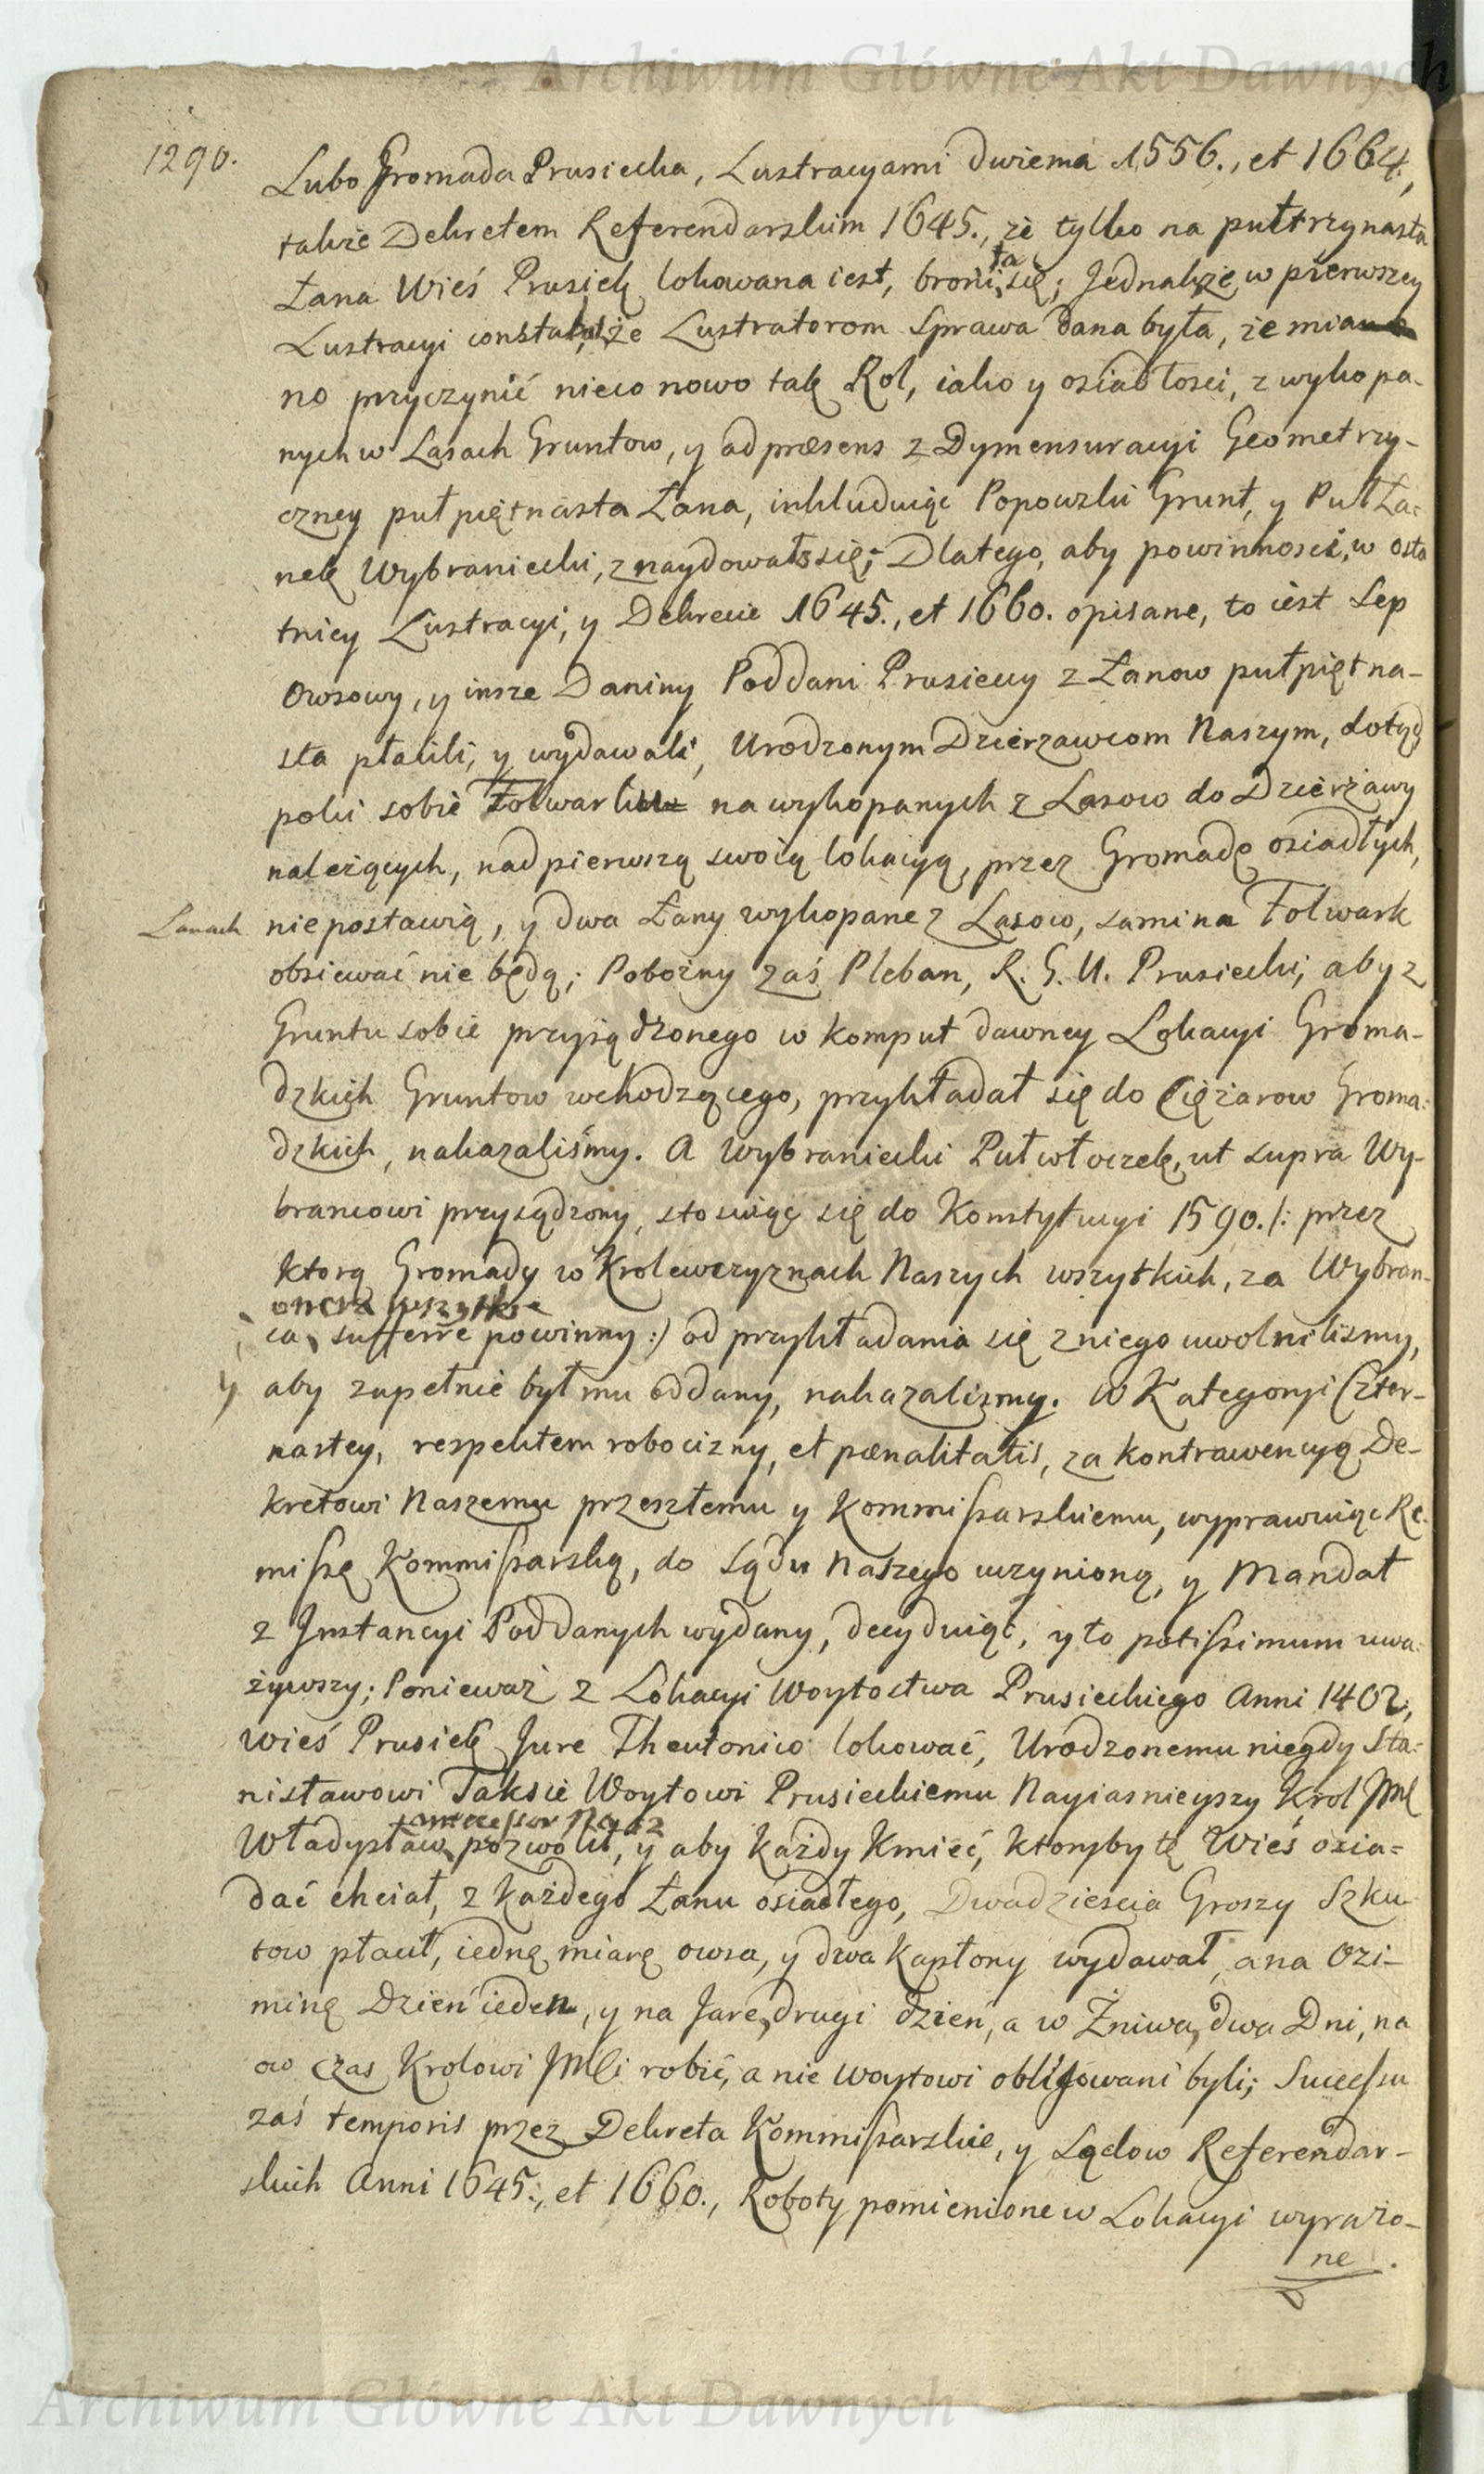 Archiwum Główne Akt Dawnych
1290.
Lubo Gromada Prusiecka, Lustracyami dwiema 1556., et 1664,
także Dekretem Referendarskim 1645., że tylko na pułtrzynasta
Łana Wieś Prusiek lokowana iest, broni ta się; Jednakże w pierwszey
Lustracyi constat, że Lustratorom Sprawa dana była, że mia
no przyczynić nieco nowo tak Rol, iako y osiadłosci, z wykopa-
nych w Lasach Gruntow, y ad præsens z Dymensuracyi Geometry-
czney puł piętnasta Łana, inkluduiąc Popowski Grunt, y Puł Ła-
nek Wybraniecki, znaydował się; Dlatego, aby powinnosci, w osta
tniey Lustracyi, y Dekrecie 1645., et 1660. opisane, to iest Sep
Owsowy, y insze Daniny Poddani Prusieccy z Łanow puł piętna-
sta płacili, y wydawali, Urodzonym Dzierzawcom Naszym, dotąd
poki sobie Folwarku na wykopanych z Lasow do Dzierżawy
należących, nad pierwszą swoią lokacyą, przez Gromadę osiadłych,
Lanach niepostawią, y dwa Łany wykopane z Lasow, sami na Folwark
obsiewać nie będą; Pobożny zaś Pleban, R. G. U. Prusiecki, aby z
Gruntu sobie przysądzonego w komput dawney Lokacyi Groma-
dzkich Gruntow wchodzącego, przykładał się do Ciężarow Groma-
dzkich, nakazaliśmy. A Wybraniecki Puł włoczek, ut supra Wy-
brancowi przysądzony, stosuiąc się do Konstytucyi 1590. /: przez
ktorą Gromady w Krolewczyznach Naszych wszytkich, za Wybran-
onera wszytkie
ca sufferre powinny :/ od przykładania się z niego uwolnilismy,
y aby zupełnie był mu oddany, nakazalismy. W Kategoryi Czter-
nastey, respektem robocizny, et pœnalitatis, za kontrawencyą De-
kretowi Naszemu przeszłemu y Kommissarskiemu, wyprawuiąc Re-
missę Kommissarską, do Sądu Naszego uczynioną, y Mandat
z Jnstancyi Poddanych wydany, decyduiąc, y to potissimum uwa-
żywszy; Ponieważ z Lokacyi Woytostwa Prusieckiego Anni 1402,
Wieś Prusiek Jure Theutonico lokować, Urodzonemu niegdy Sta-
nisławowi Taksie Woytowi Prusieckiemu Nayiasnieyszy Krol Jmć
antecessor Nasz
Władysław pozwolił, y aby każdy Kmieć, ktoryby tę Wieś osia-
dać chciał, z każdego Łanu osiadłego, Dwadziescia Groszy Szku
tow płacił, iednę miarę owsa, y dwa Kapłony wydawał, a na Ozi-
minę Dzień ieden, y na Jare, drugi dzień, a w Żniwa, dwa Dni, na
ow czas Krolowi Jmći robić, a nie Woytowi obligowani byli; Successu
zaś temporis przez Dekreta Kommissarskie, y Sądow Referendar-
skich Anni 1645., et 1660., Roboty pomienione w Lokacyi wyrażo-
ne.
Archiwum Główne Akt Dawnych